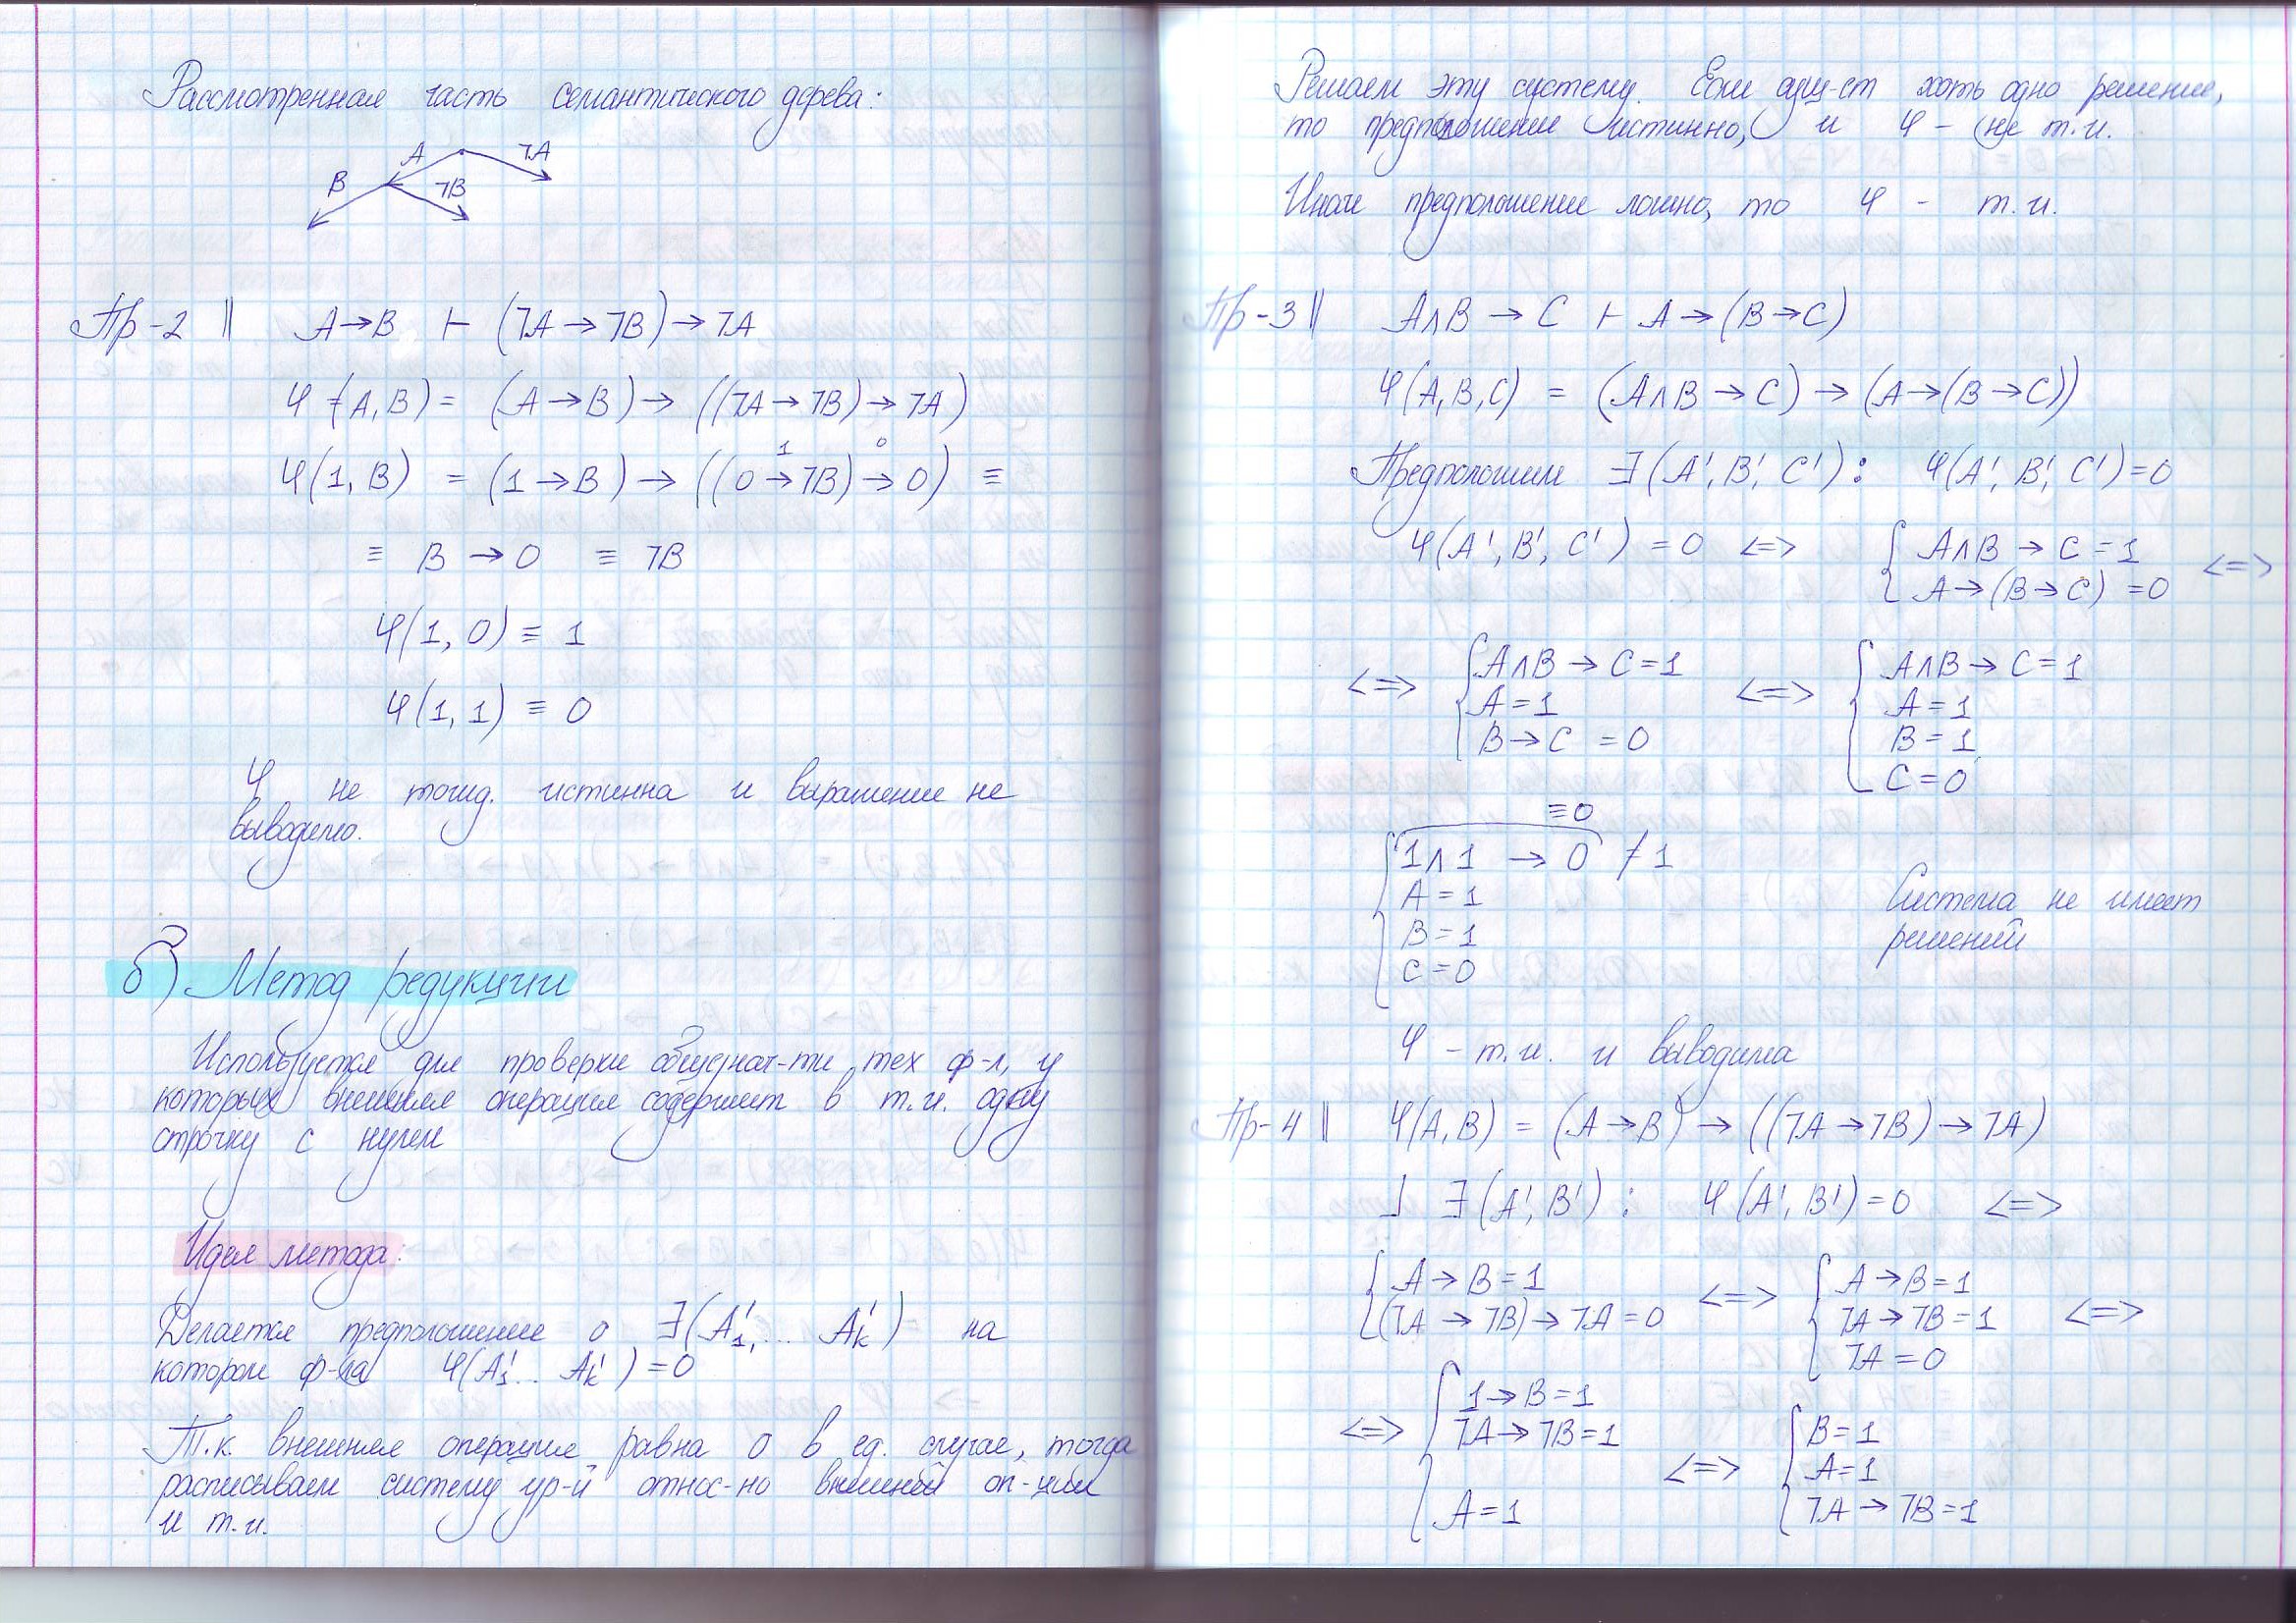 Рассмотренная часть семантического дерева:
A ¬A
B ¬B
Пр-2 || A→B ⊢ (¬A→¬B)→¬A
φ(A,B) = (A→B)→((¬A→¬B)→¬A)
1 0
φ(1,B) = (1→B)→((0→¬B)→0) ≡
≡ B→0 ≡ ¬B
φ(1,0) ≡ 1
φ(1,1) ≡ 0
φ не тожд. истинна и выражение не
выводимо.
б) Метод редукции
Используется для проверки общезнач-ти тех ф-л, у
которых внешняя операция содержит в т.и. одну
строчку с нулем
Идея метода:
Делается предположение о ∃(A'₁,... A'ₖ) на
котором ф-ла φ(A'₁... A'ₖ)=0
Т.к. внешняя операция равна 0 в ед. случае, тогда
расписываем систему ур-й относ-но внешней оп-ции
и т.и.
Решаем эту систему. Если сущ-ст хоть одно решение,
то предположение истинно, и φ - не т.и.
Иначе предположение ложно, то φ - т.и.
Пр-3 || A∧B → C ⊢ A→(B→C)
φ(A,B,C) = (A∧B→C)→(A→(B→C))
Предположим ∃(A',B',C'): φ(A',B',C')=0
φ(A',B',C')=0 <=> { A∧B→C=1 <=>
A→(B→C)=0
<=> { A∧B→C=1 <=> { A∧B→C=1
A=1 A=1
B→C=0 B=1
C=0
≡0
{ 1∧1 → 0 ≠1
A=1 Система не имеет
B=1 решений
C=0
φ - т.и. и выводима
Пр-4 || φ(A,B) = (A→B)→((¬A→¬B)→¬A)
⅃ ∃(A',B'): φ(A',B')=0 <=>
{ A→B=1 <=> { A→B=1 <=>
(¬A→¬B)→¬A=0 ¬A→¬B=1
¬A=0
<=> { 1→B=1 <=> { B=1
¬A→¬B=1 A=1
A=1 ¬A→¬B=1